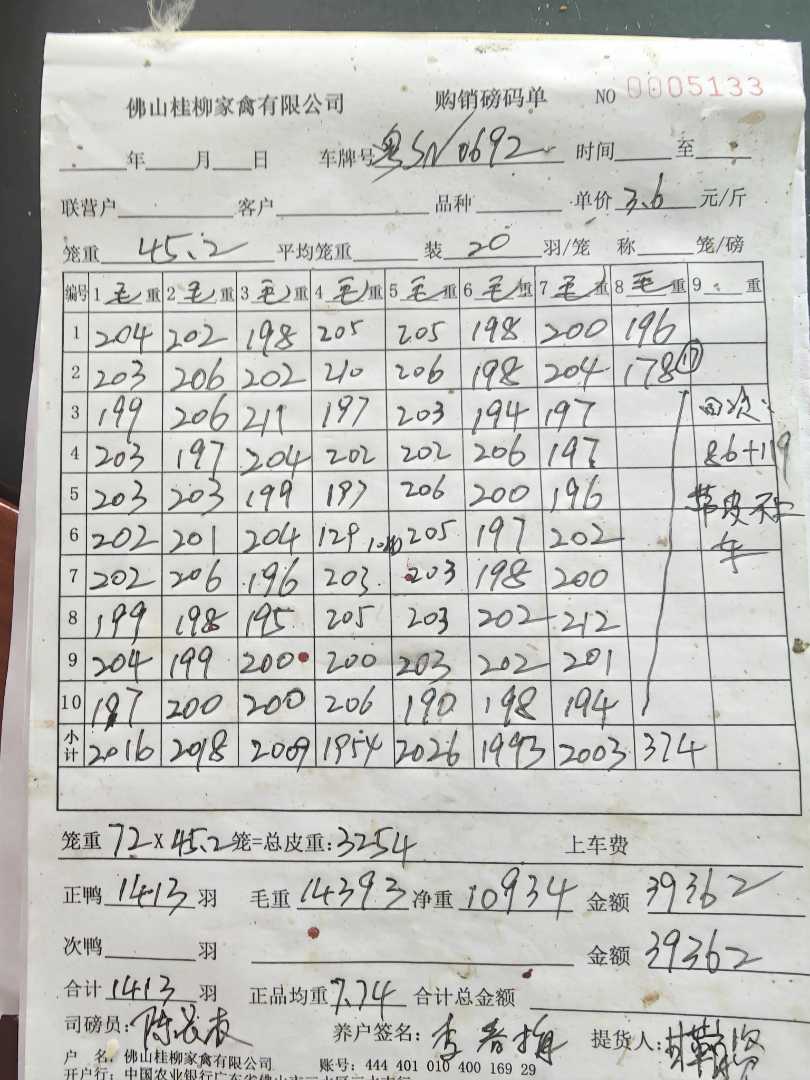 佛山桂柳家禽有限公司 购销磅码单 NO 0005133
年 月 日 车牌号 粤SN0692 时间 至
联营户 客户 品种 单价 3.6 元/斤
笼重 45.2 平均笼重 装 20 羽/笼 称 笼/磅
编号 1 毛重 2 毛重 3 毛重 4 毛重 5 毛重 6 毛重 7 毛重 8 毛重 9 重
1 204 202 198 205 205 198 200 196
2 203 206 202 210 206 198 204 178 17
3 199 206 211 197 203 194 197 回次:
4 203 197 204 202 202 206 197 86+119
5 203 203 199 197 206 200 196 带皮不上
6 202 201 204 129 205 197 202 车
7 202 206 196 203 203 198 200
8 199 198 195 205 203 202 212
9 204 199 200 200 203 202 201
10 197 200 200 206 190 198 194
小计 2016 2018 2009 1954 2026 1993 2003 374
笼重 72 X 45.2 笼=总皮重: 3254 上车费
正鸭 1413 羽 毛重 14393 净重 10934 金额 39362
次鸭 羽 金额 39362
合计 1413 羽 正品均重 7.74 合计总金额
司磅员: 陈 养户签名: 李春梅 提货人:
户 名: 佛山桂柳家禽有限公司 账号: 444 401 010 400 169 29
开户行: 中国农业银行广东省佛山市三水区三水支行